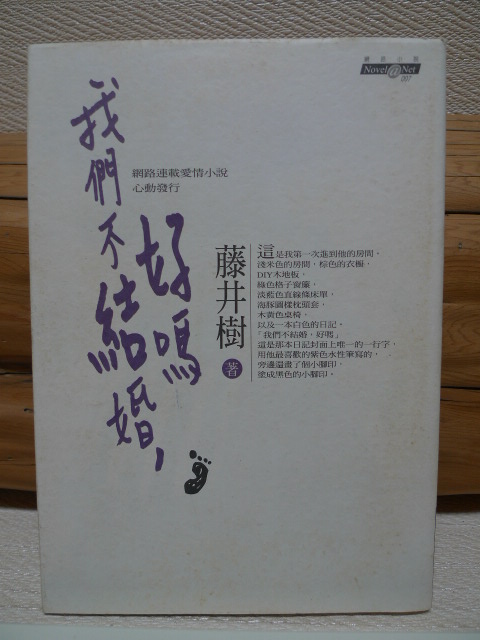 網路小說
Novel@Net
007
我們不結婚,
好嗎
網路連載愛情小說
心動發行
藤井樹
著
這是我第一次進到他的房間,
淺米色的房間,棕色的衣櫥,
DIY木地板,
綠色格子窗簾,
淡藍色直線條床單,
海豚圖樣枕頭套,
木黃色桌椅,
以及一本白色的日記,
「我們不結婚,好嗎」
這是那本日記封面上唯一的一行字,
用他最喜歡的紫色水性筆寫的,
旁邊還畫了個小腳印,
塗成黑色的小腳印。